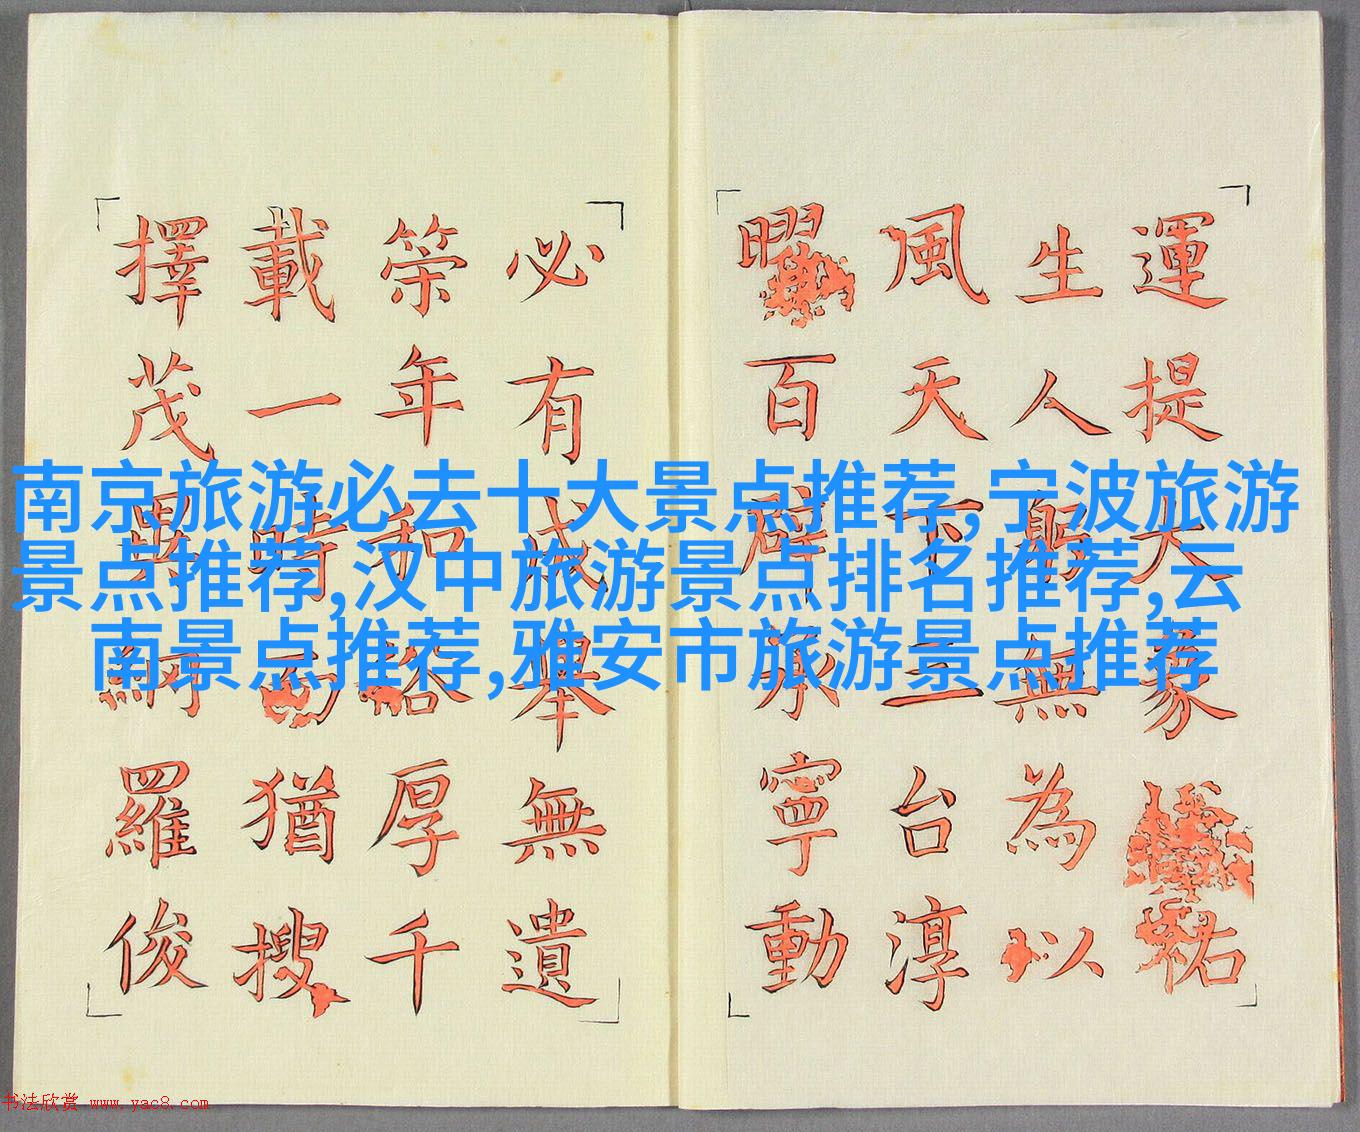 南京旅游必去十大景点推荐,宁波旅游
景点推荐,汉中旅游景点排名推荐,云
南景点推荐,雅安市旅游景点推荐
運提大象祐
生人躬無為以
風天下三台淳
曜百辟承寧動
必有成舉無遺
筞年和俗厚千
載一時乃猶搜
擇茂異網羅俊
书法欣赏 www.yac8.com